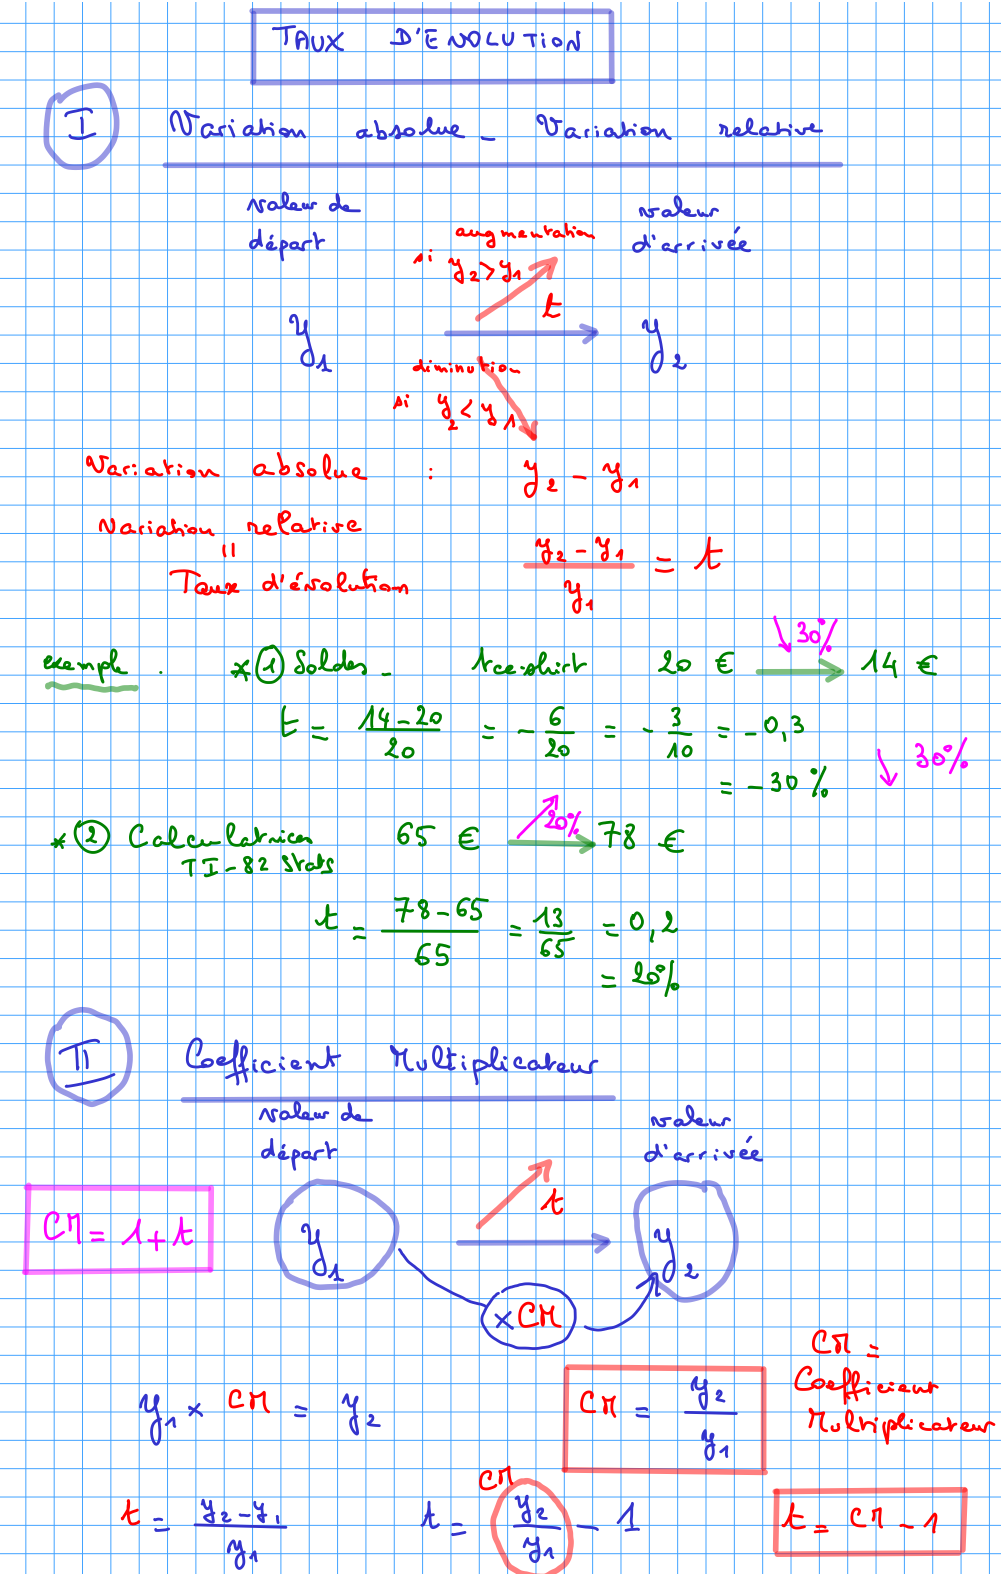 TAUX D'EVOLUTION
I Variation absolue - Variation relative
valeur de départ
valeur d'arrivée
augmentation
si y₂ > y₁
t
y₁ → y₂
diminution
si y₂ < y₁
Variation absolue : y₂ - y₁
Variation relative
=
Taux d'évolution
(y₂ - y₁)/y₁ = t
exemple . * ① Soldes - tee-shirt 20 € → 14 €
↘ 30%
t = (14-20)/20 = - 6/20 = - 3/10 = -0,3
= -30% ↘ 30%
* ② Calculatrices 65 € → 78 €
TI-82 Stats
↗ 20%
t = (78-65)/65 = 13/65 = 0,2
= 20%
II Coefficient Multiplicateur
valeur de départ
valeur d'arrivée
CM = 1+t
t
y₁ → y₂
×CM
CM =
Coefficient
Multiplicateur
y₁ × CM = y₂
CM = y₂/y₁
t = (y₂-y₁)/y₁
CM
t = y₂/y₁ - 1
t = CM - 1